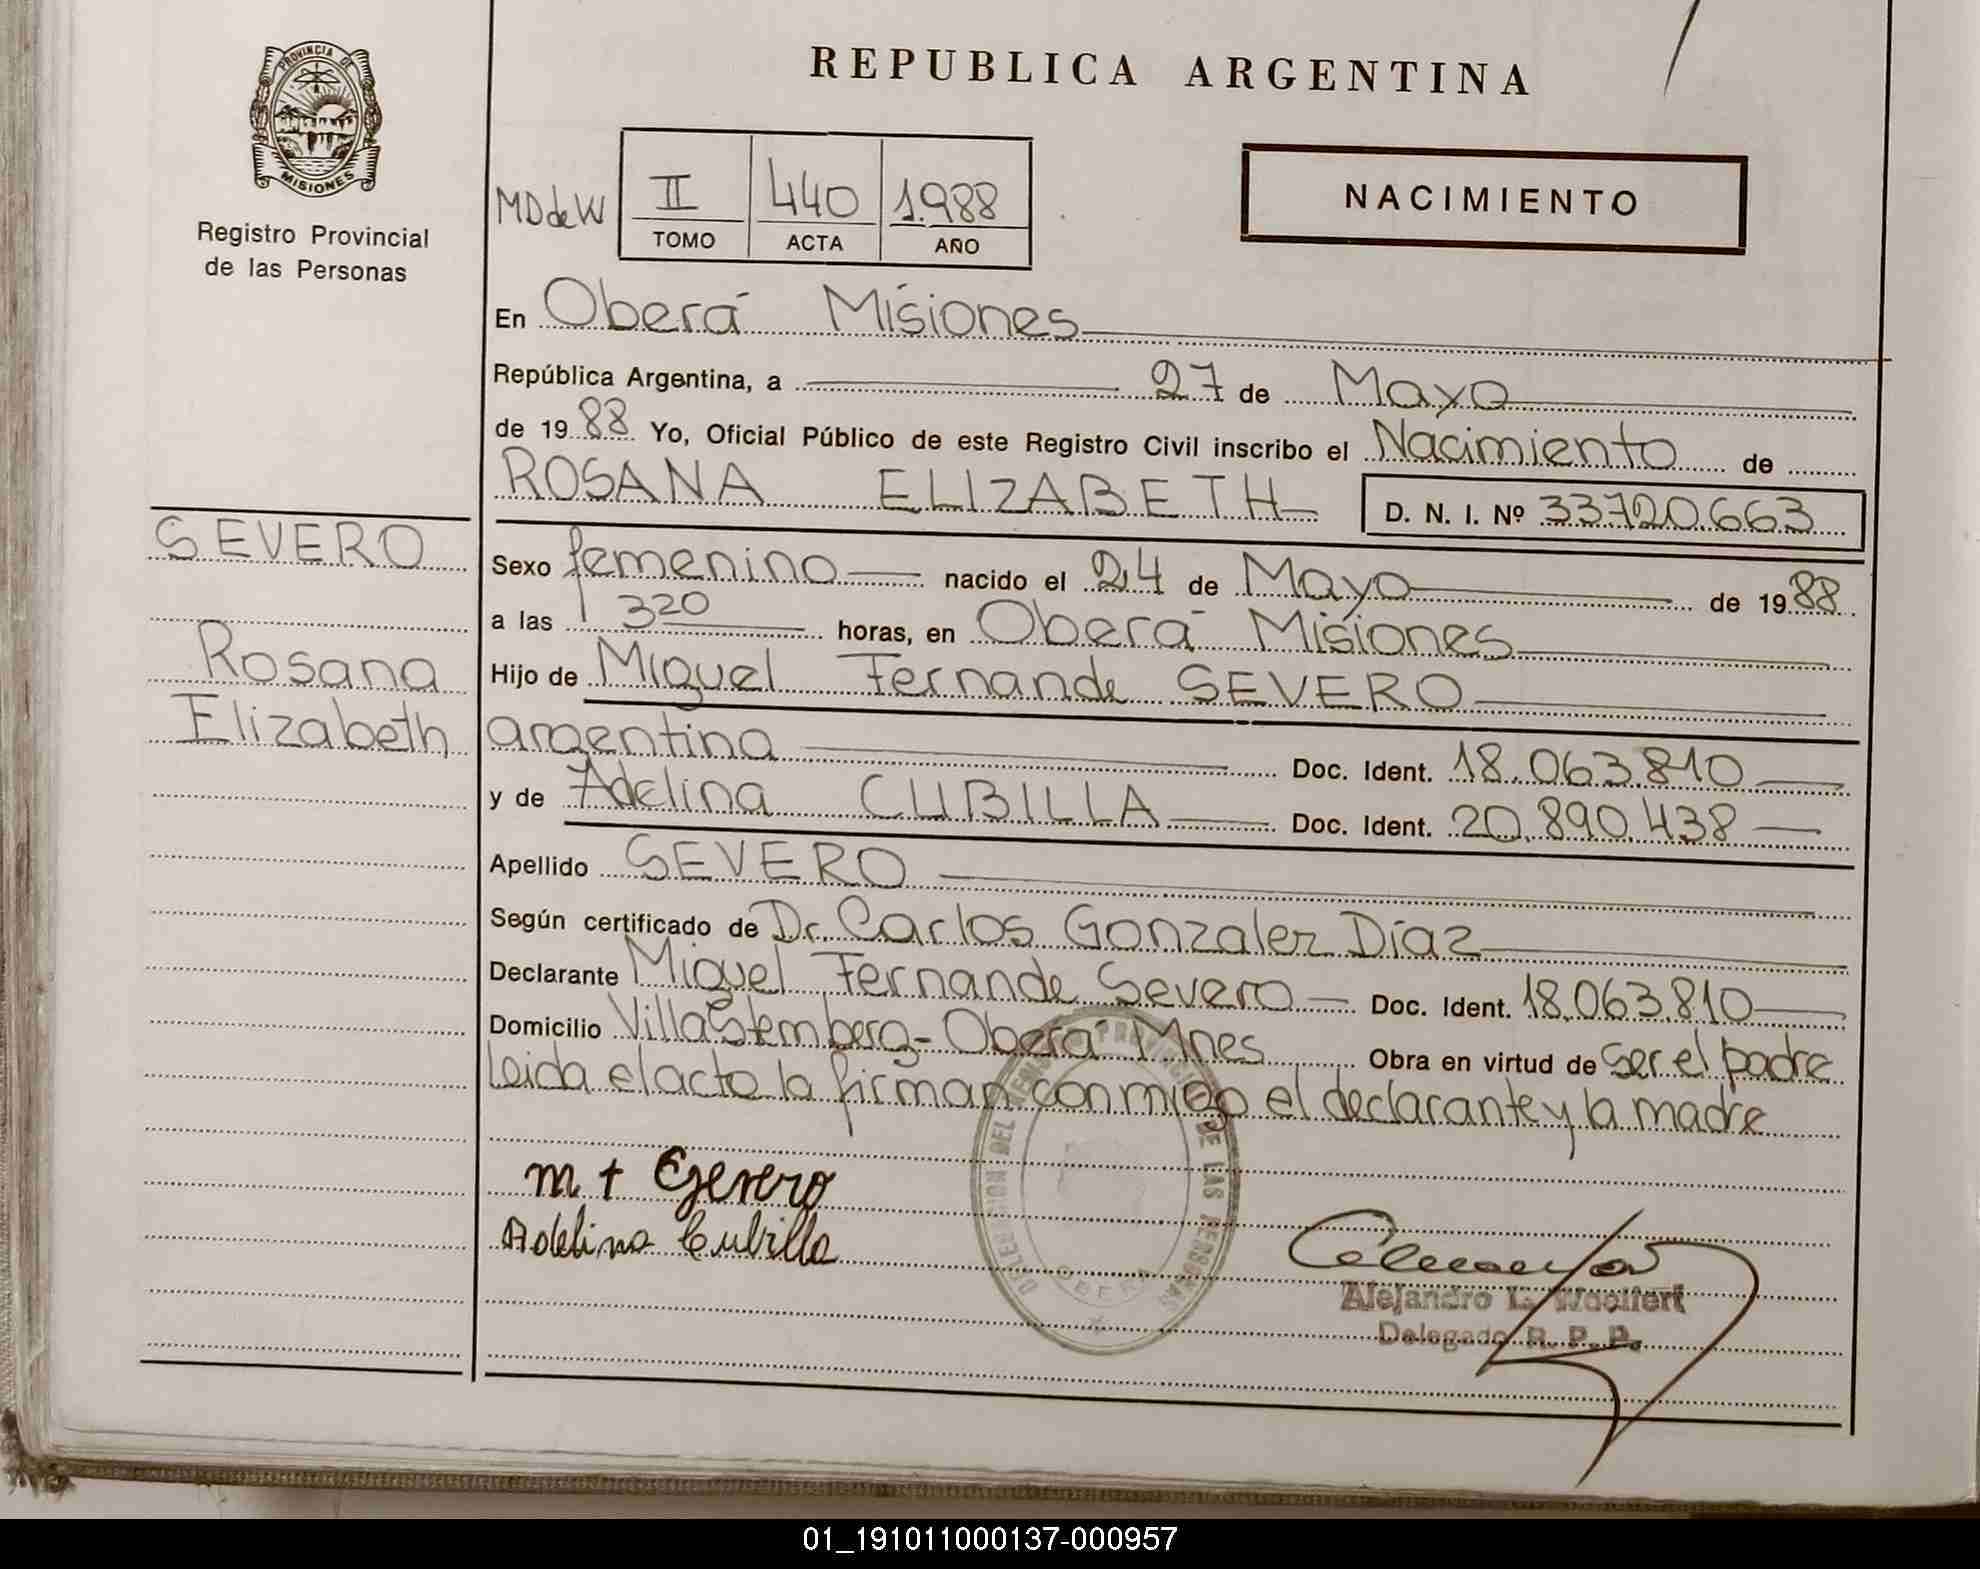 REPUBLICA ARGENTINA
PROVINCIA DE
MISIONES
Registro Provincial
de las Personas
MDdeW
II 440 1.988
TOMO ACTA AÑO
NACIMIENTO
En Oberá Misiones
República Argentina, a 27 de Mayo
de 19 88 Yo, Oficial Público de este Registro Civil inscribo el Nacimiento de
ROSANA ELIZABETH D. N. I. Nº 33720.663
SEVERO
Rosana
Elizabeth
Sexo femenino nacido el 24 de Mayo de 19 88
a las 320 horas, en Oberá Misiones
Hijo de Miguel Fernande SEVERO
argentina Doc. Ident. 18.063.810
y de Adelina CUBILLA Doc. Ident. 20.890.438
Apellido SEVERO
Según certificado de Dr. Carlos Gonzalez Díaz
Declarante Miguel Fernande Severo Doc. Ident. 18.063.810
Domicilio Villa Stemberg - Oberá Mnes Obra en virtud de ser el padre
Leida el acto la firman conmigo el declarante y la madre
Adelina Cubilla
DE LAS PERSONAS
OBERA
Alejandro L.
Delegado R. P. P.
01_191011000137-000957